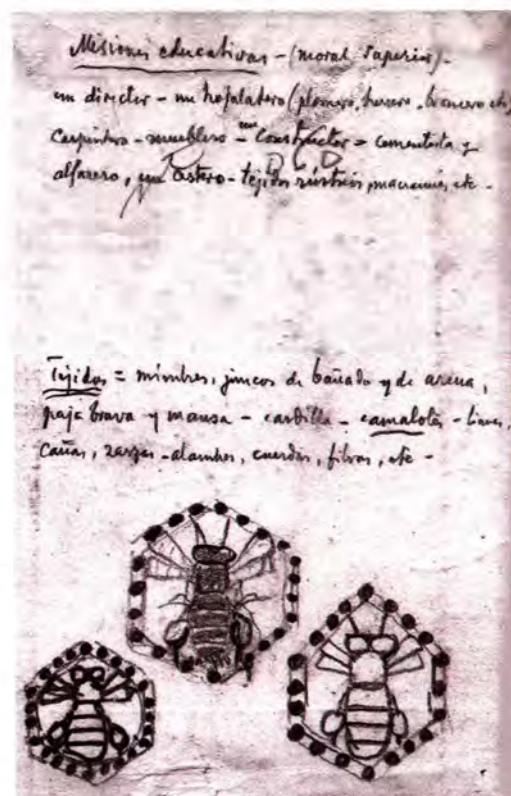 Misiones educativas - (moral superior).
un director - un hojalatero (plomero, herrero, broncero etc)
carpintero - mueblero - un constructor = cementista y
alfarero, un cestero - tejidos rústicos, macramés, etc -
Tejidos = mimbres, juncos de bañado y de arena,
paja brava y mansa - cardilla - camalotes -
cañas, zarzas - alambres, cuerdas, fibras, etc -